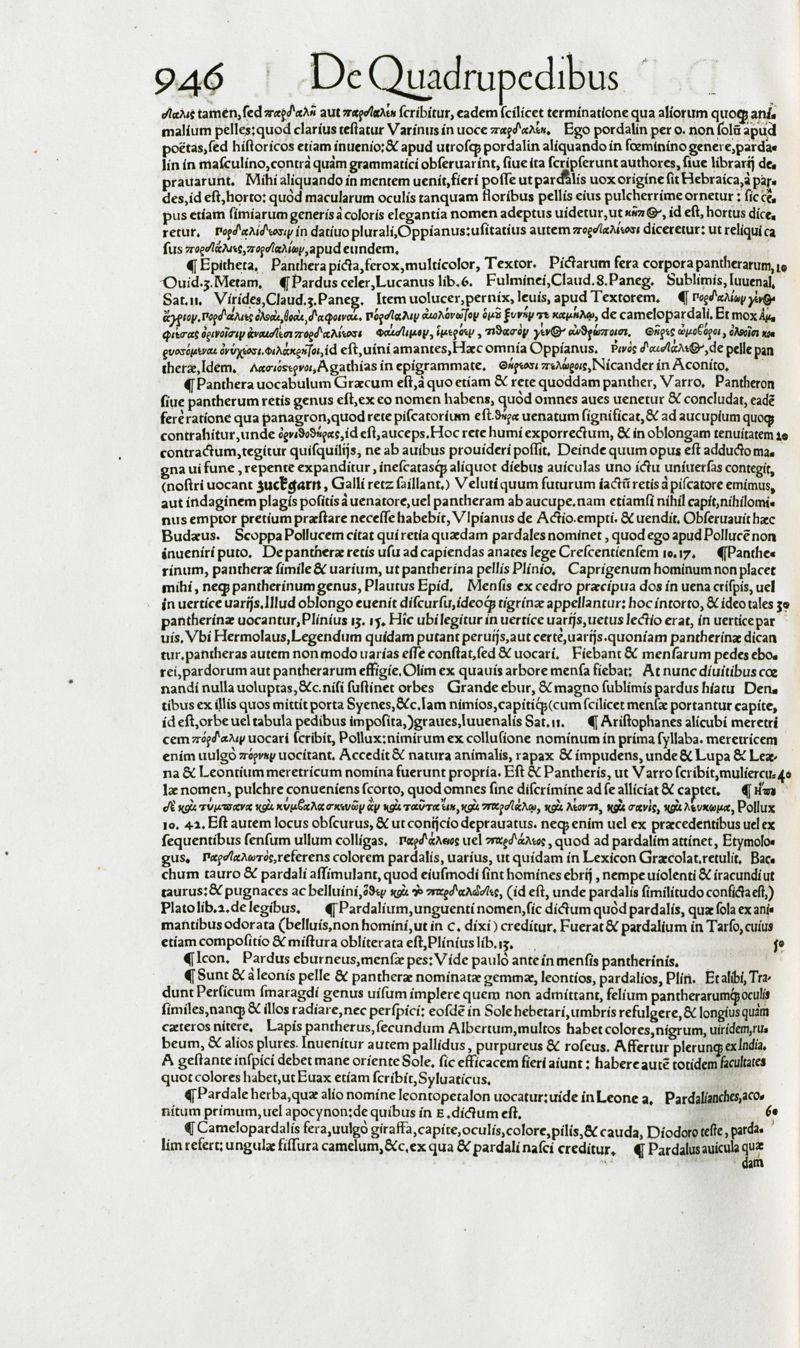 946 De Quadrupedibus
δαλις tamen, sed παρδαλῆ aut παρδαλέη scribitur, eadem scilicet terminatione qua aliorum quoq; ani-
malium pelles: quod clarius testatur Varinus in uoce παρδαλέη. Ego pordalin per o. non solũ apud
poëtas, sed historicos etiam inuenio: & apud utrosq; pordalin aliquando in fœminino genere, parda-
lin in masculino, contrà quàm grammatici obseruarint, siue ita scripserunt authores, siue librarij de-
prauarunt. Mihi aliquando in mentem uenit, fieri posse ut pardalis uox origine sit Hebraica, à par-
des, id est, horto: quòd macularum oculis tanquam floribus pellis eius pulcherrime ornetur: sic cẽ-
pus etiam simiarum generis à coloris elegantia nomen adeptus uidetur, ut κῆπ, id est, hortus dice-
retur. Πορδαλίδεσσιν in datiuo plurali, Oppianus: usitatius autem πορδαλίεσσι diceretur: ut reliqui ca
sus πορδάλιες, πορδαλίων, apud eundem.
¶ Epitheta. Panthera picta, ferox, multicolor, Textor. Pictarum fera corpora pantherarum, 10
Ouid.3. Metam. ¶ Pardus celer, Lucanus lib.6. Fulminei, Claud.8. Paneg. Sublimis, Iuuenal.
Sat.11. Virides, Claud.3. Paneg. Item uolucer, pernix, leuis, apud Textorem. ¶ Πορδαλίων γένος
ἄγριον. Πορδάλιες ὀλοαὶ, θοαὶ, δαφοιναί. Πόρδαλιν αἰολόνωτον ὁμοῦ ξυνήν τε καμήλῳ, de camelopardali. Et mox
ὀρίνοισιν ἀναιδέσι πορδαλίεσσι φαίδιμον, ἱμερόεν, τιθασὸν γένος ἀνθρώποισι. Θῆρες ὠμοβόροι, ὀλοοῖσι κο-
ρυσσόμεναι ὀνύχεσσι. Φιλάκρητοι, id est, uini amantes, Hæc omnia Oppianus. Ῥινὸς δαιδάλεος, de pelle pan
theræ, Idem. Λασιόστερνοι, Agathias in epigrammate. Θήρεσσι πελώροις, Nicander in Aconito.
¶ Panthera uocabulum Græcum est, à quo etiam & rete quoddam panther, Varro. Pantheron
siue pantherum retis genus est, ex eo nomen habens, quòd omnes aues uenetur & concludat, eadẽ
ferè ratione qua panagron, quod rete piscatorium est. θήρα uenatum significat, & ad aucupium quoq;
contrahitur, unde ὀρνιθοθήρας, id est, auceps. Hoc rete humi exporrectum, & in oblongam tenuitatem 20
contractum, tegitur quisquilijs, ne ab auibus prouideri possit. Deinde quum opus est adducto ma-
gna ui fune, repente expanditur, inescatasq; aliquot diebus auiculas uno ictu uniuersas contegit,
(nostri uocant zuckgarn, Galli retz saillant.) Veluti quum futurum iactũ retis à piscatore emimus,
aut indaginem plagis positis à uenatore, uel pantheram ab aucupe. nam etiamsi nihil capit, nihilomi-
nus emptor pretium præstare necesse habebit, Vlpianus de Actio. empti. & uendit. Obseruauit hæc
Budæus. Scoppa Pollucem citat qui retia quædam pardales nominet, quod ego apud Pollucẽ non
inueniri puto. De pantheræ retis usu ad capiendas anates lege Crescentiensem 10.17. ¶ Panthe-
rinum, pantheræ simile & uarium, ut pantherina pellis Plinio. Caprigenum hominum non placet
mihi, neq; pantherinum genus, Plautus Epid. Mensis ex cedro præcipua dos in uena crispis, uel
in uertice uarijs. Illud oblongo euenit discursu, ideoq; tigrinæ appellantur: hoc intorto, & ideo tales 30
pantherinæ uocantur, Plinius 13. 15. Hic ubi legitur in uertice uarijs, uetus lectio erat, in uertice par
uis. Vbi Hermolaus, Legendum quidam putant peruijs, aut certè, uarijs. quoniam pantherinæ dican
tur. pantheras autem non modo uarias esse constat, sed & uocari. Fiebant & mensarum pedes ebo-
rei, pardorum aut pantherarum effigie. Olim ex quauis arbore mensa fiebat: At nunc diuitibus cœ
nandi nulla uoluptas, &c. nisi sustinet orbes Grande ebur, & magno sublimis pardus hiatu Den-
tibus ex illis quos mittit porta Syenes, &c. Iam nimios, capitiq; (cum scilicet mensæ portantur capite,
id est, orbe uel tabula pedibus imposita,) graues, Iuuenalis Sat.11. ¶ Aristophanes alicubi meretri
cem πόρδαλιν uocari scribit, Pollux: nimirum ex collusione nominum in prima syllaba. meretricem
enim uulgò πόρνην uocitant. Accedit & natura animalis, rapax & impudens, unde & Lupa & Leæ-
na & Leontium meretricum nomina fuerunt propria. Est & Pantheris, ut Varro scribit, muliercu- 40
læ nomen, pulchre conueniens scorto, quod omnes sine discrimine ad se alliciat & captet. ¶
δὲ καὶ τύμπανα καὶ κύμβαλα σκευῶν ἂν καὶ ταῦτα εἴη, καὶ παρδάλῳ, καὶ λέοντι, καὶ σανὶς, καὶ λεύκωμα, Pollux
10. 42. Est autem locus obscurus, & ut conijcio deprauatus. neq; enim uel ex præcedentibus uel ex
sequentibus sensum ullum colligas. Παρδάλεος uel παρδάλειος, quod ad pardalim attinet, Etymolo-
gus. Παρδαλωτός, referens colorem pardalis, uarius, ut quidam in Lexicon Græcolat. retulit. Bac-
chum tauro & pardali assimulant, quod eiusmodi sint homines ebrij, nempe uiolenti & iracundi ut
taurus: & pugnaces ac belluini, ὅθεν καὶ τὸ παρδαλῶδες, (id est, unde pardalis similitudo conficta est,)
Plato lib.2. de legibus. ¶ Pardalium, unguenti nomen, sic dictum quòd pardalis, quæ sola ex ani-
mantibus odorata (belluis, non homini, ut in C. dixi) creditur. Fuerat & pardalium in Tarso, cuius
etiam compositio & mistura obliterata est, Plinius lib.13. 50
¶ Icon. Pardus eburneus, mensæ pes: Vide paulò ante in mensis pantherinis.
¶ Sunt & à leonis pelle & pantheræ nominatæ gemmæ, leontios, pardalios, Plin. Et alibi, Tra-
dunt Persicum smaragdi genus uisum implere quem non admittant, felium pantherarumq; oculis
similes, nanq; & illos radiare, nec perspici: eosdẽ in Sole hebetari, umbris refulgere, & longius quàm
cæteros nitere. Lapis pantherus, secundum Albertum, multos habet colores, nigrum, uiridem, ru-
beum, & alios plures. Inuenitur autem pallidus, purpureus & roseus. Affertur plerunq; ex India.
A gestante inspici debet mane oriente Sole. sic efficacem fieri aiunt: habere autẽ totidem facultates
quot colores habet, ut Euax etiam scribit, Syluaticus.
¶ Pardale herba, quæ alio nomine leontopetalon uocatur: uide in Leone a. Pardalianches, aco-
nitum primum, uel apocynon: de quibus in E. dictum est. 60
¶ Camelopardalis fera, uulgò giraffa, capite, oculis, colore, pilis, & cauda, Diodoro teste, parda-
lim refert: ungulæ fissura camelum, &c. ex qua & pardali nasci creditur. ¶ Pardalus auicula quæ
dam